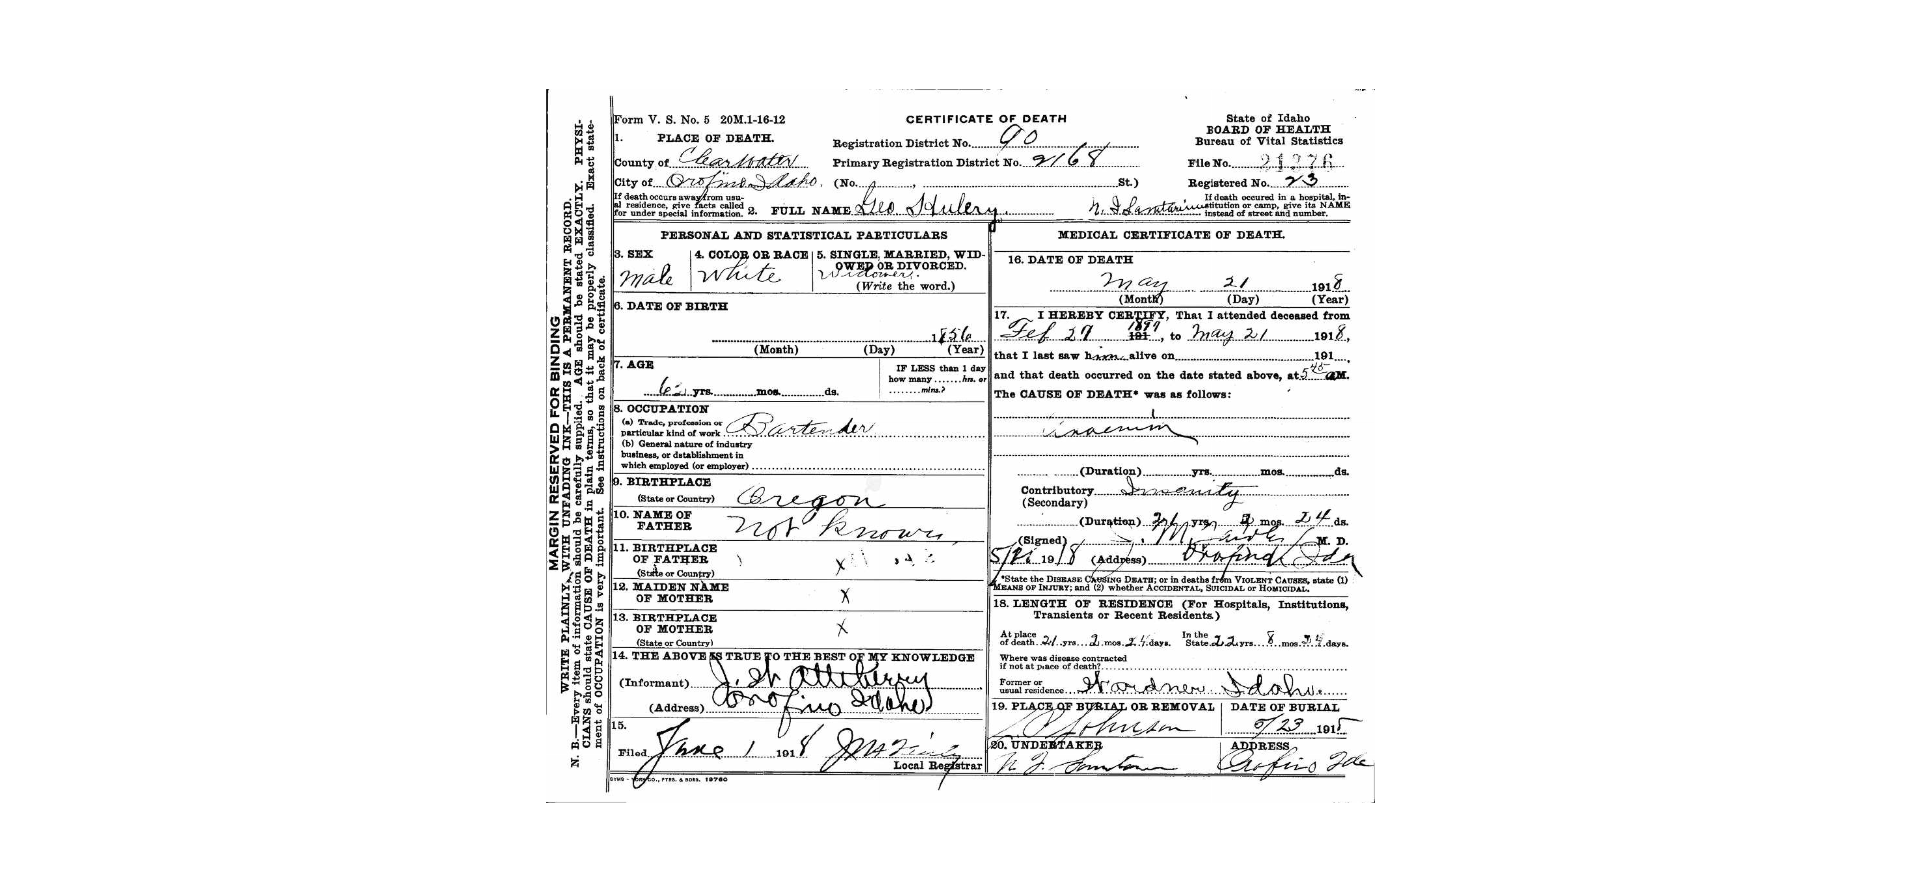 MARGIN RESERVED FOR BINDING
WRITE PLAINLY, WITH UNFADING INK—THIS IS A PERMANENT RECORD.
N. B.—Every item of information should be carefully supplied. AGE should be stated EXACTLY. PHYSI-
CIANS should state CAUSE OF DEATH in plain terms, so that it may be properly classified. Exact state-
ment of OCCUPATION is very important. See instructions on back of certificate.
Form V. S. No. 5 20M.1-16-12
CERTIFICATE OF DEATH
State of Idaho
BOARD OF HEALTH
Bureau of Vital Statistics
1. PLACE OF DEATH.
Registration District No. 90
County of Clearwater
Primary Registration District No. 2168
File No.
City of Orofino Idaho.
(No. , St.)
Registered No. 23
If death occurs away from usu-
al residence, give facts called
for under special information.
2. FULL NAME Geo Hulery.
N. I Sanitarium
If death occured in a hospital, in-
stitution or camp, give its NAME
instead of street and number.
PERSONAL AND STATISTICAL PARTICULARS
3. SEX
Male
4. COLOR OR RACE
White
5. SINGLE, MARRIED, WID-
OWED OR DIVORCED.
Widower.
(Write the word.)
6. DATE OF BIRTH
1856
(Month) (Day) (Year)
7. AGE
62 yrs. mos. ds.
IF LESS than 1 day
how many ....... hrs. or
........ mins.?
8. OCCUPATION
(a) Trade, profession or
particular kind of work Bartender
(b) General nature of industry
business, or dstablishment in
which employed (or employer)
9. BIRTHPLACE
(State or Country) Oregon
10. NAME OF
FATHER not known
11. BIRTHPLACE
OF FATHER x
(State or Country)
12. MAIDEN NAME
OF MOTHER x
13. BIRTHPLACE
OF MOTHER x
(State or Country)
14. THE ABOVE IS TRUE TO THE BEST OF MY KNOWLEDGE
(Informant) J. W Atteberry
(Address) Orofino Idaho
15.
Filed June 1 1918
Local Registrar
MEDICAL CERTIFICATE OF DEATH.
16. DATE OF DEATH
May 21 1918
(Month) (Day) (Year)
17. I HEREBY CERTIFY, That I attended deceased from
Feb 27 1897 191, to May 21 1918,
that I last saw him alive on 191 ,
and that death occurred on the date stated above, at 5 45 AM.
The CAUSE OF DEATH* was as follows:
(Duration) yrs. mos. ds.
Contributory Insanity
(Secondary)
(Duration) yrs. 2 mos. 24 ds.
(Signed) M. D.
5/21 1918 (Address) Orofino Ida
*State the DISEASE CAUSING DEATH; or in deaths from VIOLENT CAUSES, state (1)
MEANS OF INJURY; and (2) whether ACCIDENTAL, SUICIDAL or HOMICIDAL.
18. LENGTH OF RESIDENCE (For Hospitals, Institutions,
Transients or Recent Residents.)
At place
of death 21 yrs. 2 mos. 24 days.
In the
State 22 yrs. 8 mos. 24 days.
Where was disease contracted
if not at place of death?
Former or
usual residence Wardner Idaho.
19. PLACE OF BURIAL OR REMOVAL
Johnson
DATE OF BURIAL
5/23 191
20. UNDERTAKER
N. I.
ADDRESS
Orofino Ida